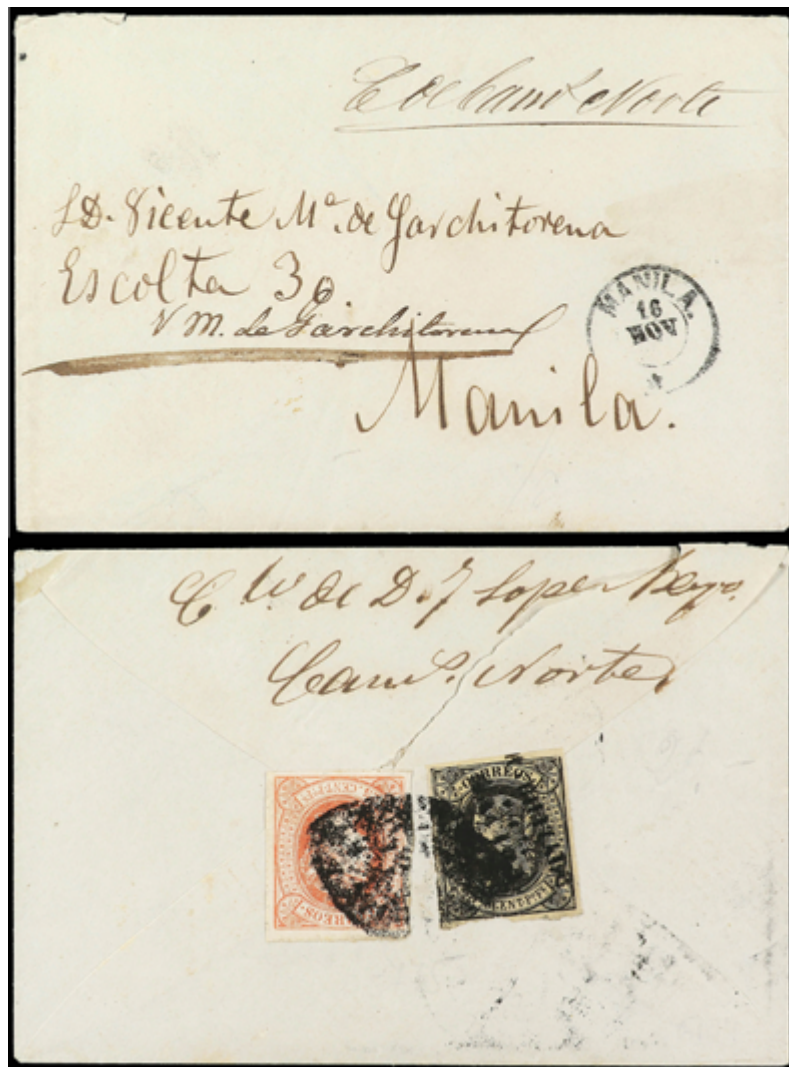 C de Cam.s Norte
S D. Vicente Mª. de Garchitorena
Escolta 30
V M. de Garchitorena
MANILA.
16
NOV
Manila.
de D. J Lope
Cam.s Norte
CORREOS
CORREOS